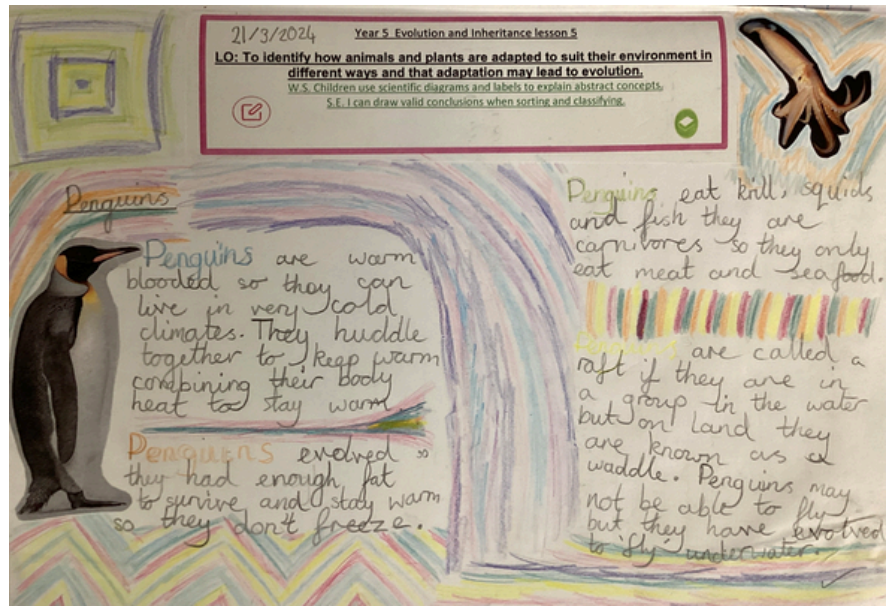 21/3/2024
Year 5 Evolution and Inheritance lesson 5
LO: To identify how animals and plants are adapted to suit their environment in
different ways and that adaptation may lead to evolution.
W.S. Children use scientific diagrams and labels to explain abstract concepts.
S.E. I can draw valid conclusions when sorting and classifying.
Penguins
Penguins are warm
blooded so they can
live in very cold
climates. They huddle
together to keep warm
combining their body
heat to stay warm
Penguins evolved so
they had enough fat
to survive and stay warm
so they don't freeze.
Penguins eat krill, squids
and fish they are
carnivores so they only
eat meat and seafood.
Penguins are called a
raft if they are in
a group in the water
but on land they
are known as a
waddle. Penguins may
not be able to fly
but they have evolved
to 'fly' underwater.